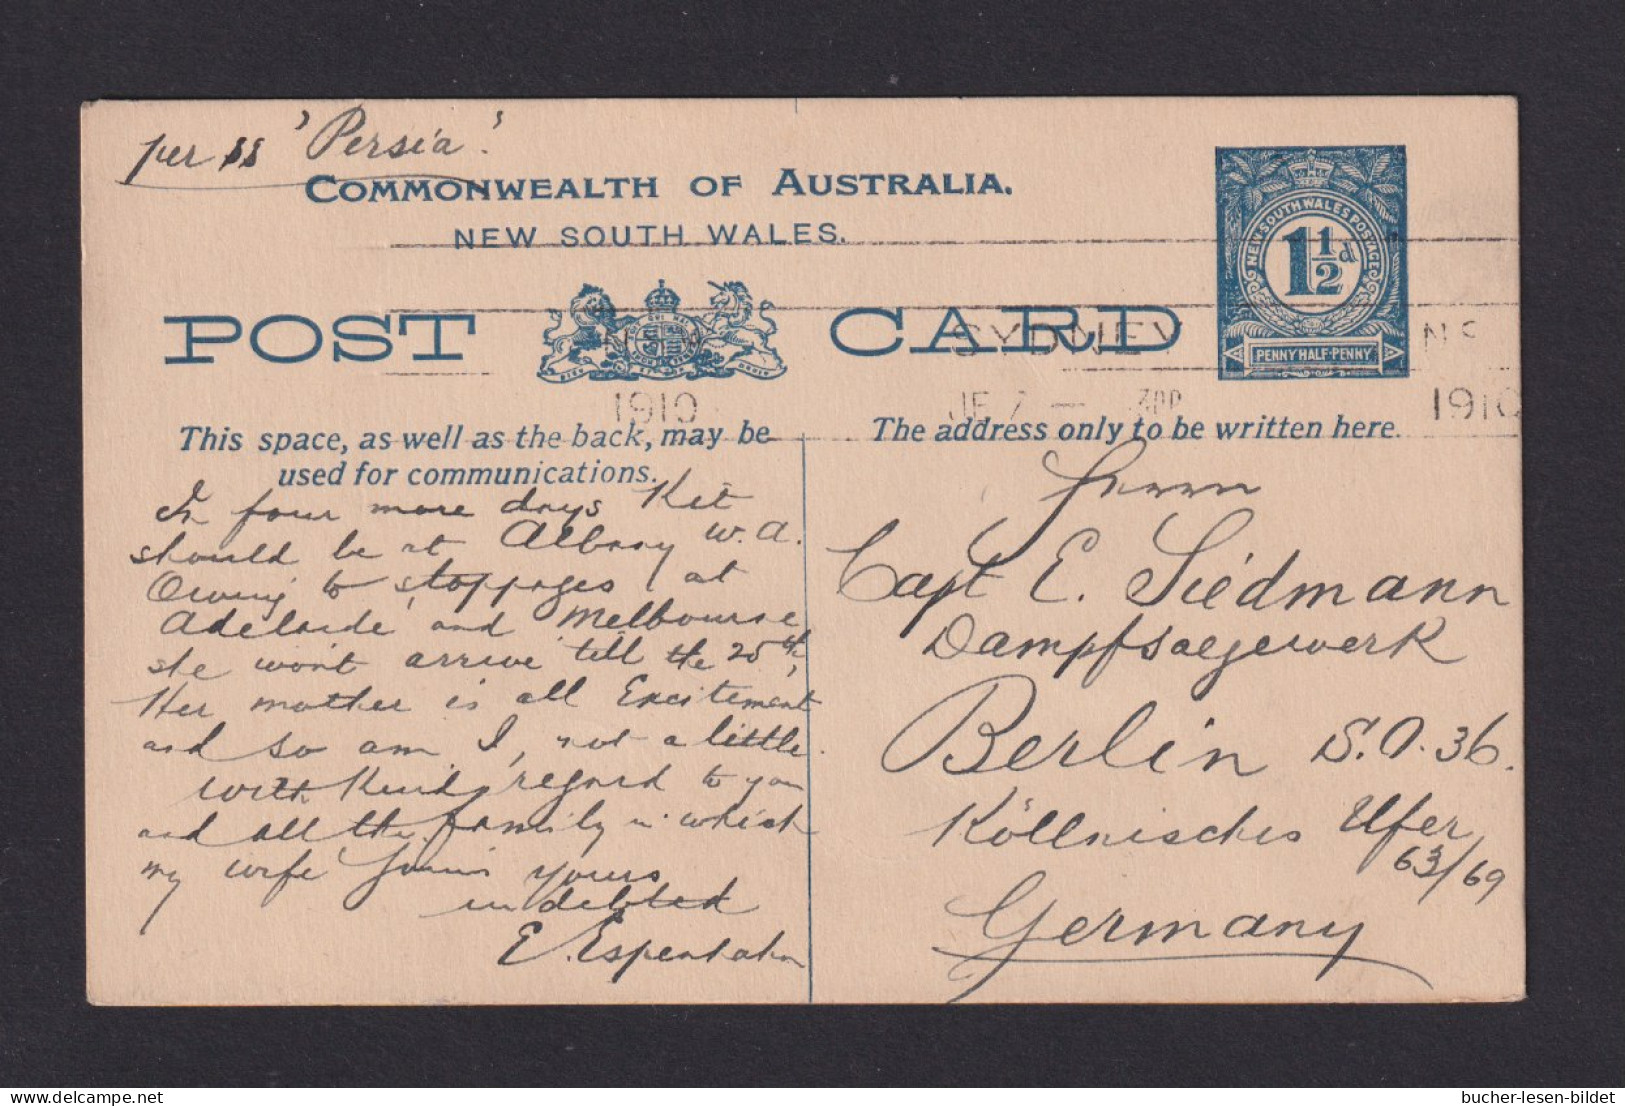 per ss 'Persia'.
COMMONWEALTH OF AUSTRALIA.
NEW SOUTH WALES.
POST CARD
NEW SOUTH WALES POSTAGE
1½d
PENNY HALF-PENNY
SYDNEY NS
1910
JE 7 — 1910
This space, as well as the back, may be
used for communications.
The address only to be written here.
In four more daysKet
should be at Albany W.A.
Owing to stoppages at
Adelaide and Melbourne
she wont arrive till the 25th,
Her mother is all Excitement
and so am I, not a little.
with Kind regard to you
and all the family in which
my wife Joins yours
indebted
E. Espenhahn
Herrn
Capt E. Siedmann
Dampfsaegewerk
Berlin S.O. 36.
Köllnisches Ufer
63/69
Germany
bucher-lesen-bildet